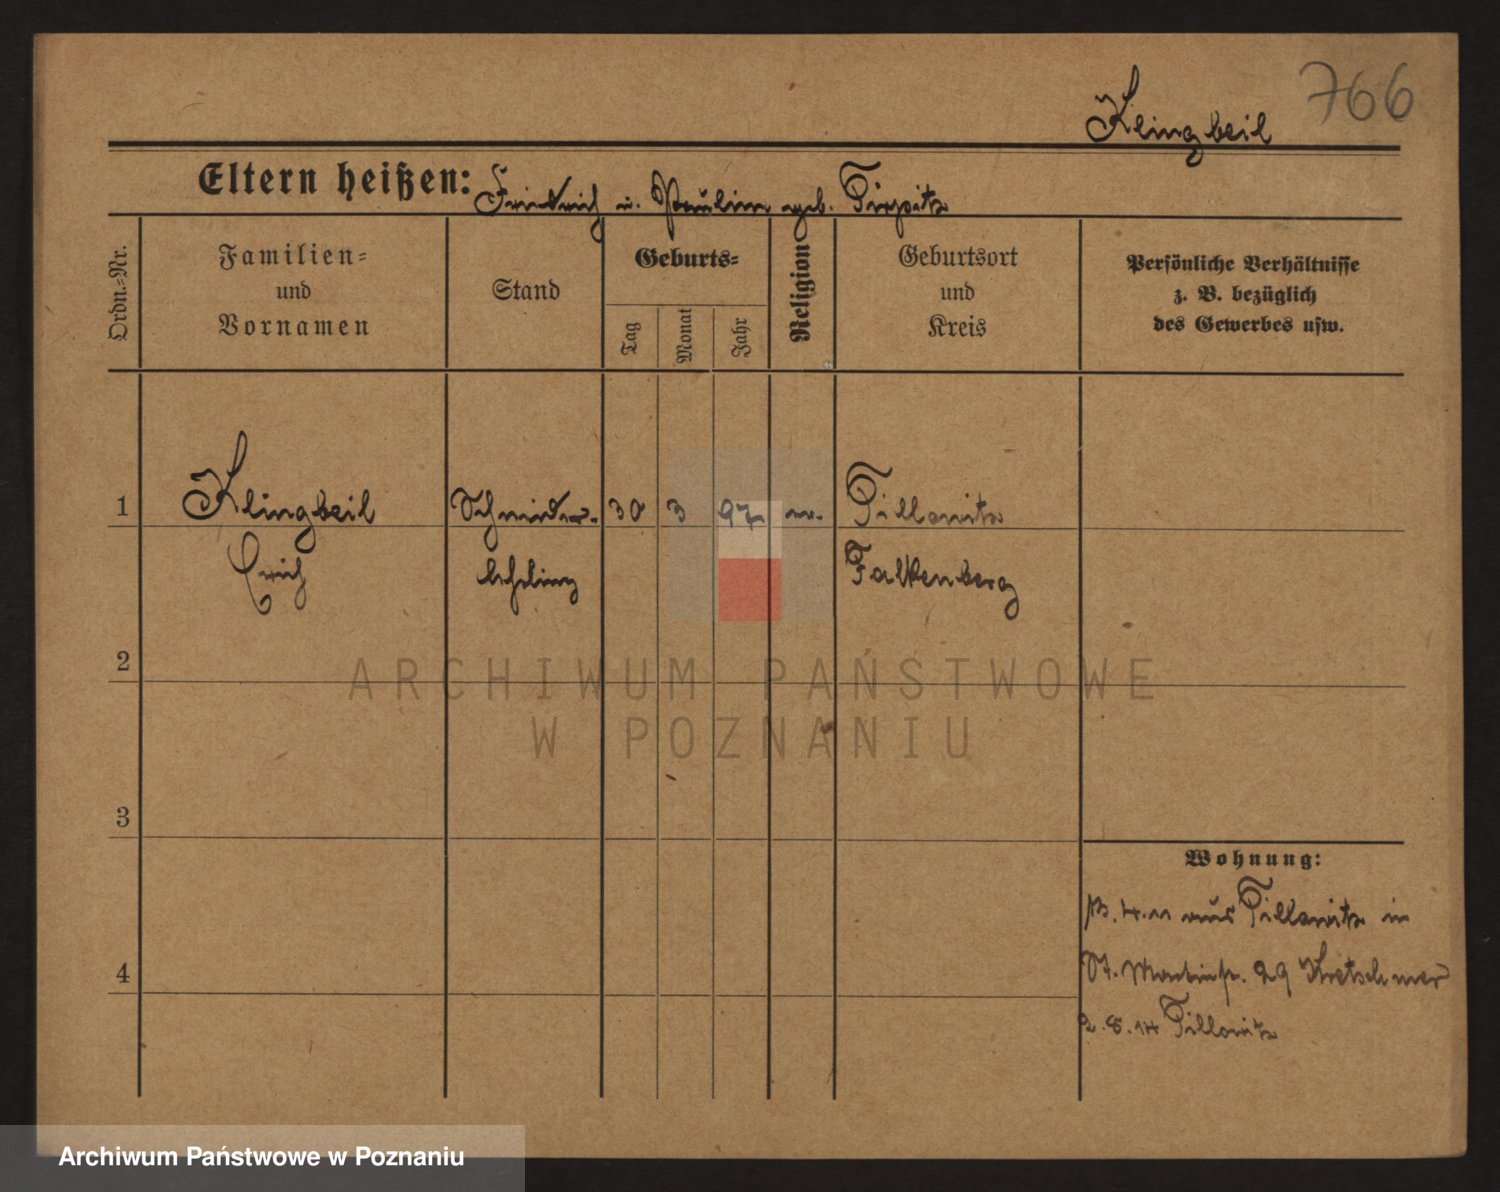 766
Klingbeil
Eltern heißen: Friedrich u. Paulina geb. Tirpitz
Ordn.=Nr.
Familien=
und
Vornamen
Stand
Geburts=
Tag
Monat
Jahr
Religion
Geburtsort
und
Kreis
Persönliche Verhältnisse
z. B. bezüglich
des Gewerbes usw.
1 Klingbeil Schneider- 30 3 97 Tillowitz
Erich lehrling Falkenberg
2
3
4
Wohnung:
4.11 aus Tillowitz in
St. Martinstr. 29 Kretschmer
2.8.14 Tillowitz
ARCHIWUM PAŃSTWOWE
W POZNANIU
Archiwum Państwowe w Poznaniu